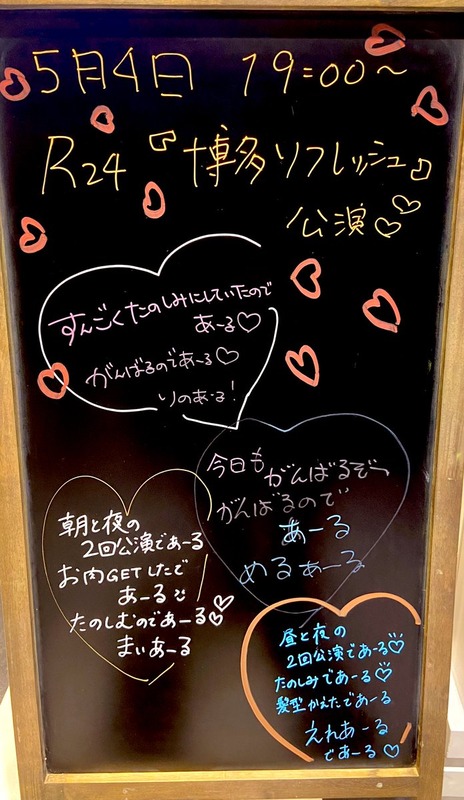 5月4日 19:00～
R24『博多リフレッシュ』
公演♡♡
すんごくたのしみにしていたので
あーる♡
がんばるのであ～る♡
りのあーる!
今日もがんばるぞー
がんばるので
あーる
めるあーる
朝と夜の
2回公演であーる
お肉GETしたで
あーる
たのしむのであーる♡♡
まぃあーる
昼と夜の
2回公演であーる♡
たのしみであーる♡
髪型かえたであーる
えれあーる
であーる♡